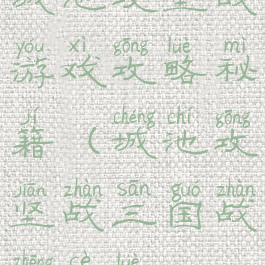 yóu xì gōng lüè mì
游戏攻略秘
jí chéng chí gōng
籍(城池攻
jiān zhàn sān guó zhàn
坚战三国战